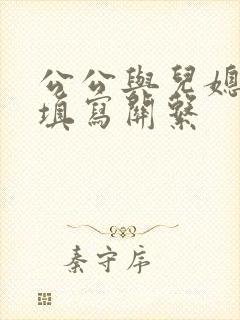 公公與兒媳
填寫關繫
秦守序